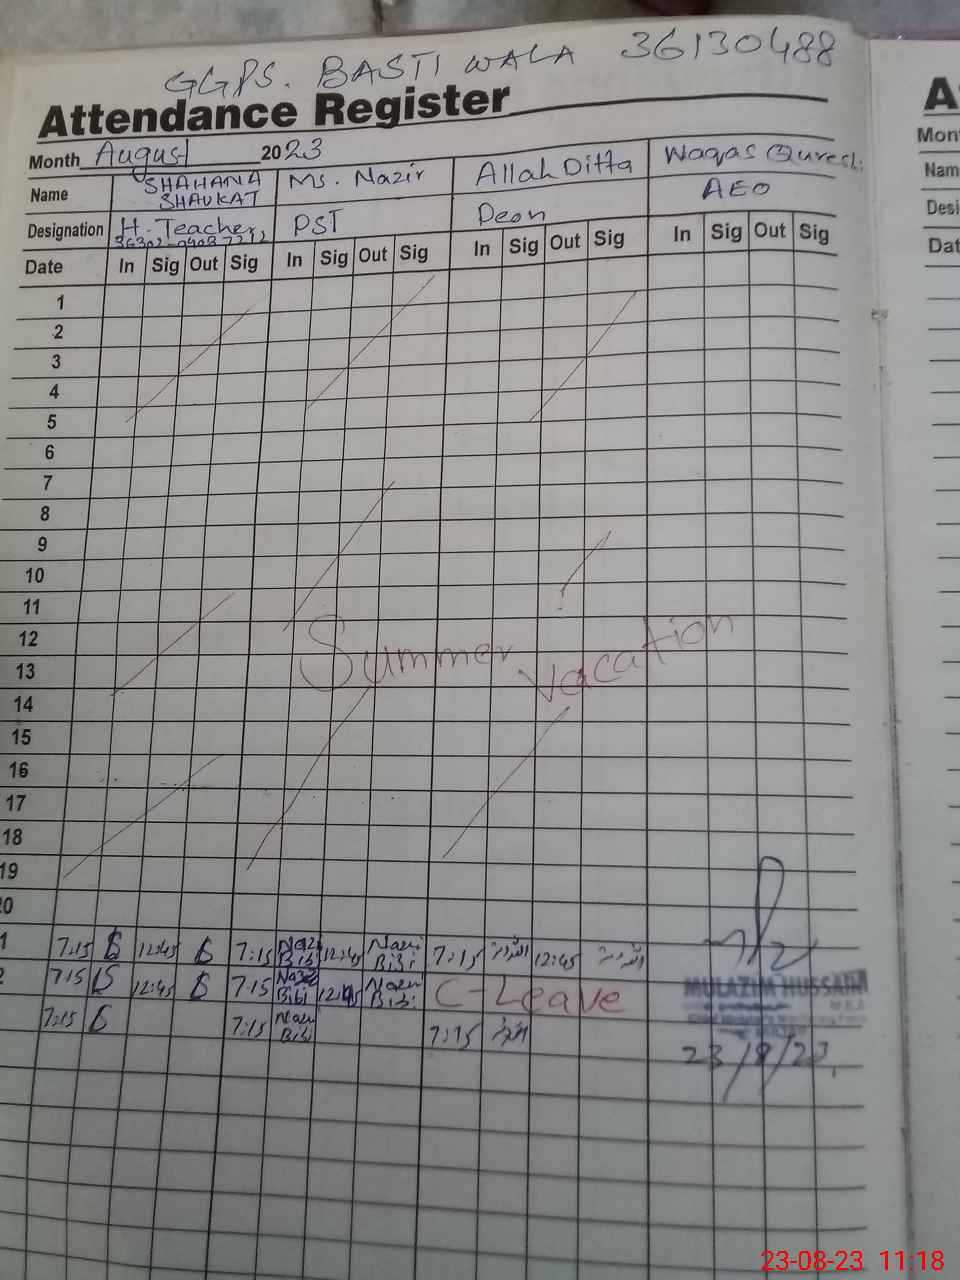 GGPS. BASTI WALA 36130488
Attendance Register
Month August 2023
Name SHAHANA SHAUKAT Ms. Nazir Allah Ditta Waqas Qureshi
Designation H. Teacher PST Peon AEO
Date In Sig Out Sig In Sig Out Sig In Sig Out Sig In Sig Out Sig
1
2
3
4
5
6
7
8
9
10
11
12
13
Summer vacation
14
15
16
17
18
19
20
1 7:15 12:45 7:15 Bibi 12:45 Bibi 7:15 12:45
2 7:15 12:45 7:15 Bibi 12:45 Bibi C-Leave
7:15 7:15 Bibi 7:15
MULAZIM HUSSAIN
23/8/23
A
Mon
Nam
Desi
Dat
23-08-23 11:18